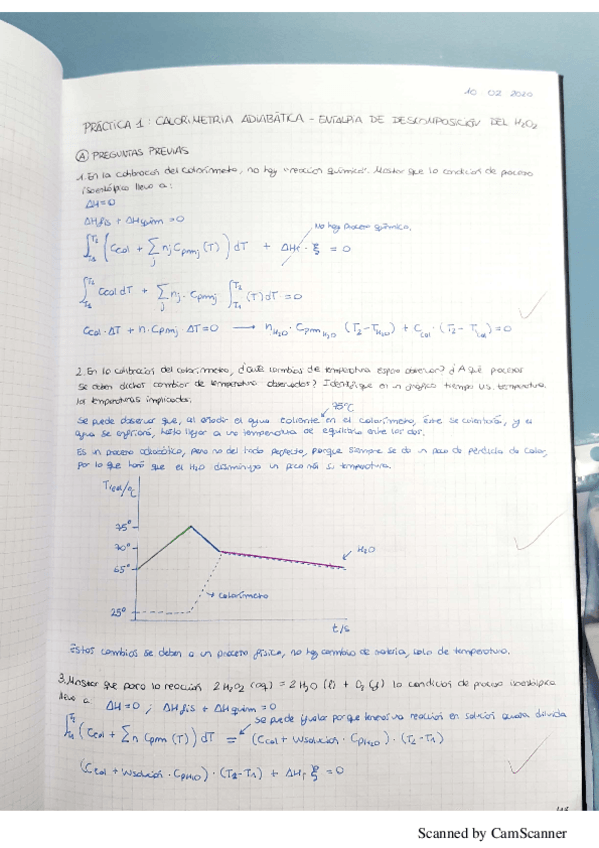 10 02 2020
PRÁCTICA 1: CALORIMETRÍA ADIABÁTICA - ENTALPÍA DE DESCOMPOSICIÓN DEL H₂O₂
Ⓐ PREGUNTAS PREVIAS
1. En la calibración del calorímetro, no hay "reacción química". Mostrar que la condición de proceso
isoentálpico lleva a:
ΔH=0
ΔHfis + ΔHquim = 0
No hay proceso químico.
∫_{T1}^{T2} (Ccal + Σ_j nj Cpmj (T)) dT + ΔHr · ξ = 0
∫_{T1}^{T2} Ccal dT + Σ_j nj · Cpmj ∫_{T1}^{T2} (T) dT = 0
Ccal · ΔT + n · Cpmj ΔT = 0 → n_{H2O} · Cpm_{H2O} (T2 - T_{H2O}) + C_{cal} · (T2 - T_{cal}) = 0
2. En la calibración del calorímetro, ¿qué cambios de temperatura espera observar? ¿A qué proceso
se deben dichos cambios de temperatura observados? Identifique en un gráfico tiempo vs. temperatura
las temperaturas implicadas.
75°C
Se puede observar que, al añadir el agua caliente en el calorímetro, éste se calentaría, y el
agua se enfriará, hasta llegar a una temperatura de equilibrio entre los dos.
Es un proceso adiabático, pero no del todo perfecto, porque siempre se da un poco de pérdida de calor,
por lo que hará que el H₂O disminuya un poco más su temperatura.
75°
70°
65°
25°
H₂O
calorímetro
t/s
Estos cambios se deben a un proceso físico, no hay cambio de materia, solo de temperatura.
3. Mostrar que para la reacción 2H₂O₂ (aq) = 2H₂O (l) + O₂ (g) la condición de proceso isoentálpico
lleva a
ΔH=0 ; ΔHfis + ΔHquim = 0
se puede igualar porque tenemos una reacción en solución acuosa diluida
∫_{T1}^{T2} (Ccal + Σ n Cpm (T)) dT = (Ccal + Wsolución · Cp_{H2O}) · (T2 - T1)
(Ccal + Wsolución · Cp_{H2O}) · (T2 - T1) + ΔHr ξ = 0
Scanned by CamScanner